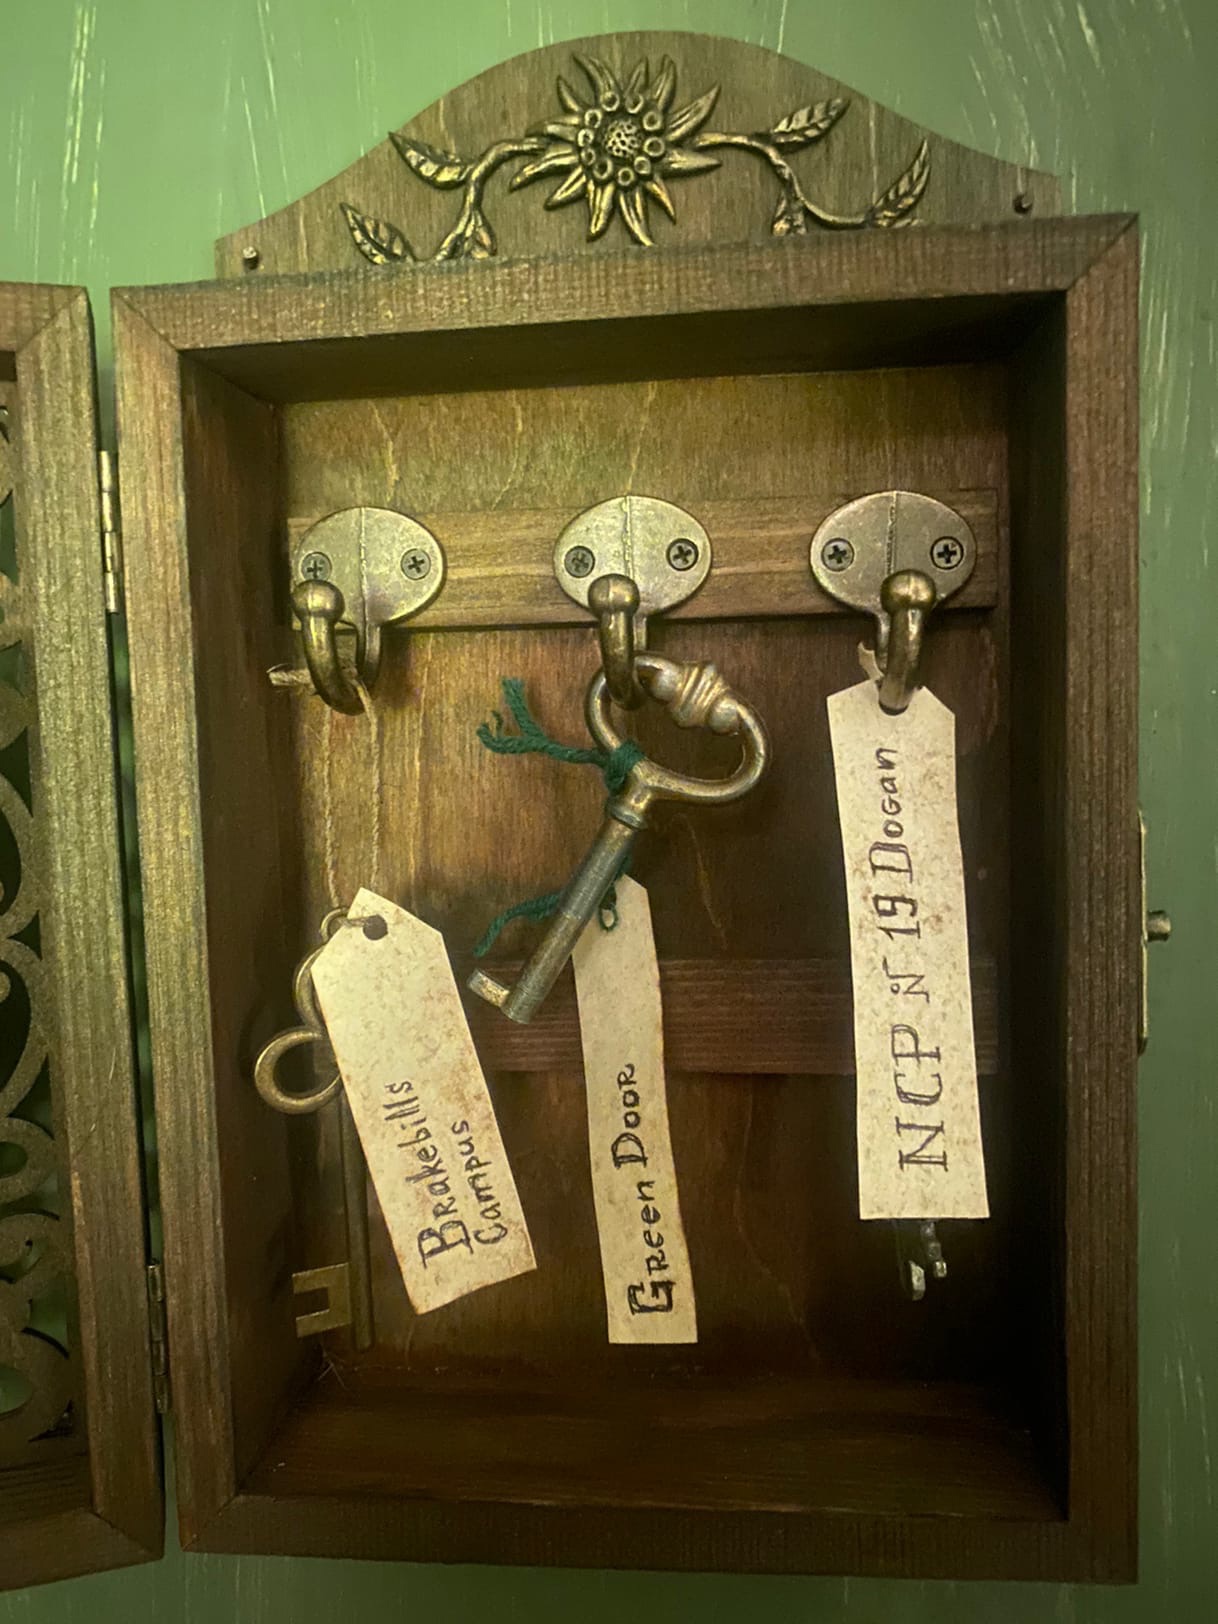 Brakebills
Campus
Green Door
NCP № 19 Dogan